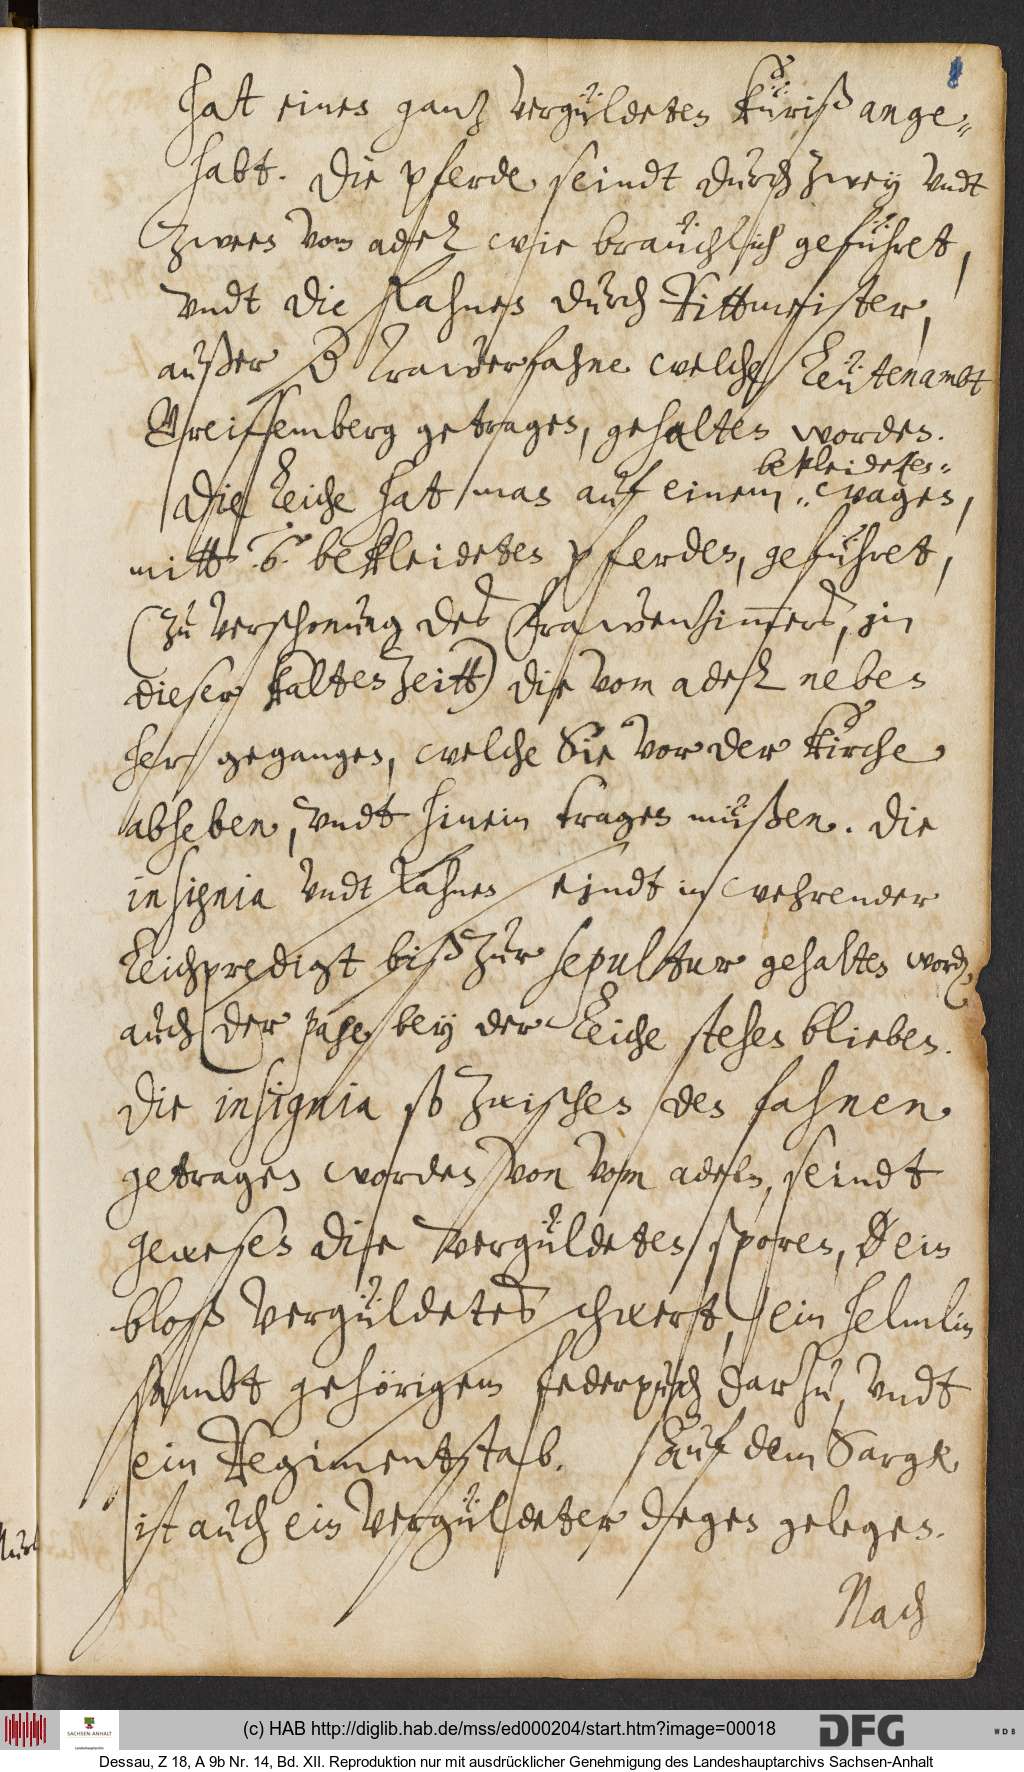 hat einen gantz vergüldeten Küriß ange-
habt. Die pferde seindt durch zwey vndt
zween vom adel wie bräuchlich geführet,
vndt die Fahnen durch Rittmeister,
außer d Trawerfahne welche Leütenambt
Greiffemberg getragen, gehalten worden.
bekleideten
Die Leiche hat man auf einem wagen,
mitt 6 bekleideten pferden, geführet,
(zu verschonung des Frawenzimmers, jn
dieser kalten Zeitt) die vom adel neben
her gegangen, welche Sie vor der Kirche
abheben, vndt hinein tragen müßen. Die
insignia vndt Fahnen sejndt in wehrender
Leichpredigt biß zur sepultur gehalten word
auch der page bey der Leiche stehen blieben.
Die insignia so zwischen den fahnen
getragen worden von vom adeln, seindt
gewesen die vergüldeten sporen, ein
bloß vergüldetes schwert, ein helmlin
sambt gehörigem federpusch darzu, vndt
ein Regimentstab. Auf dem Sargk
ist auch ein vergüldeter degen gelegen.
Nach
(c) HAB http://diglib.hab.de/mss/ed000204/start.htm?image=00018
SACHSEN-ANHALT
Landeshauptarchiv
DFG
WDB
Dessau, Z 18, A 9b Nr. 14, Bd. XII. Reproduktion nur mit ausdrücklicher Genehmigung des Landeshauptarchivs Sachsen-Anhalt